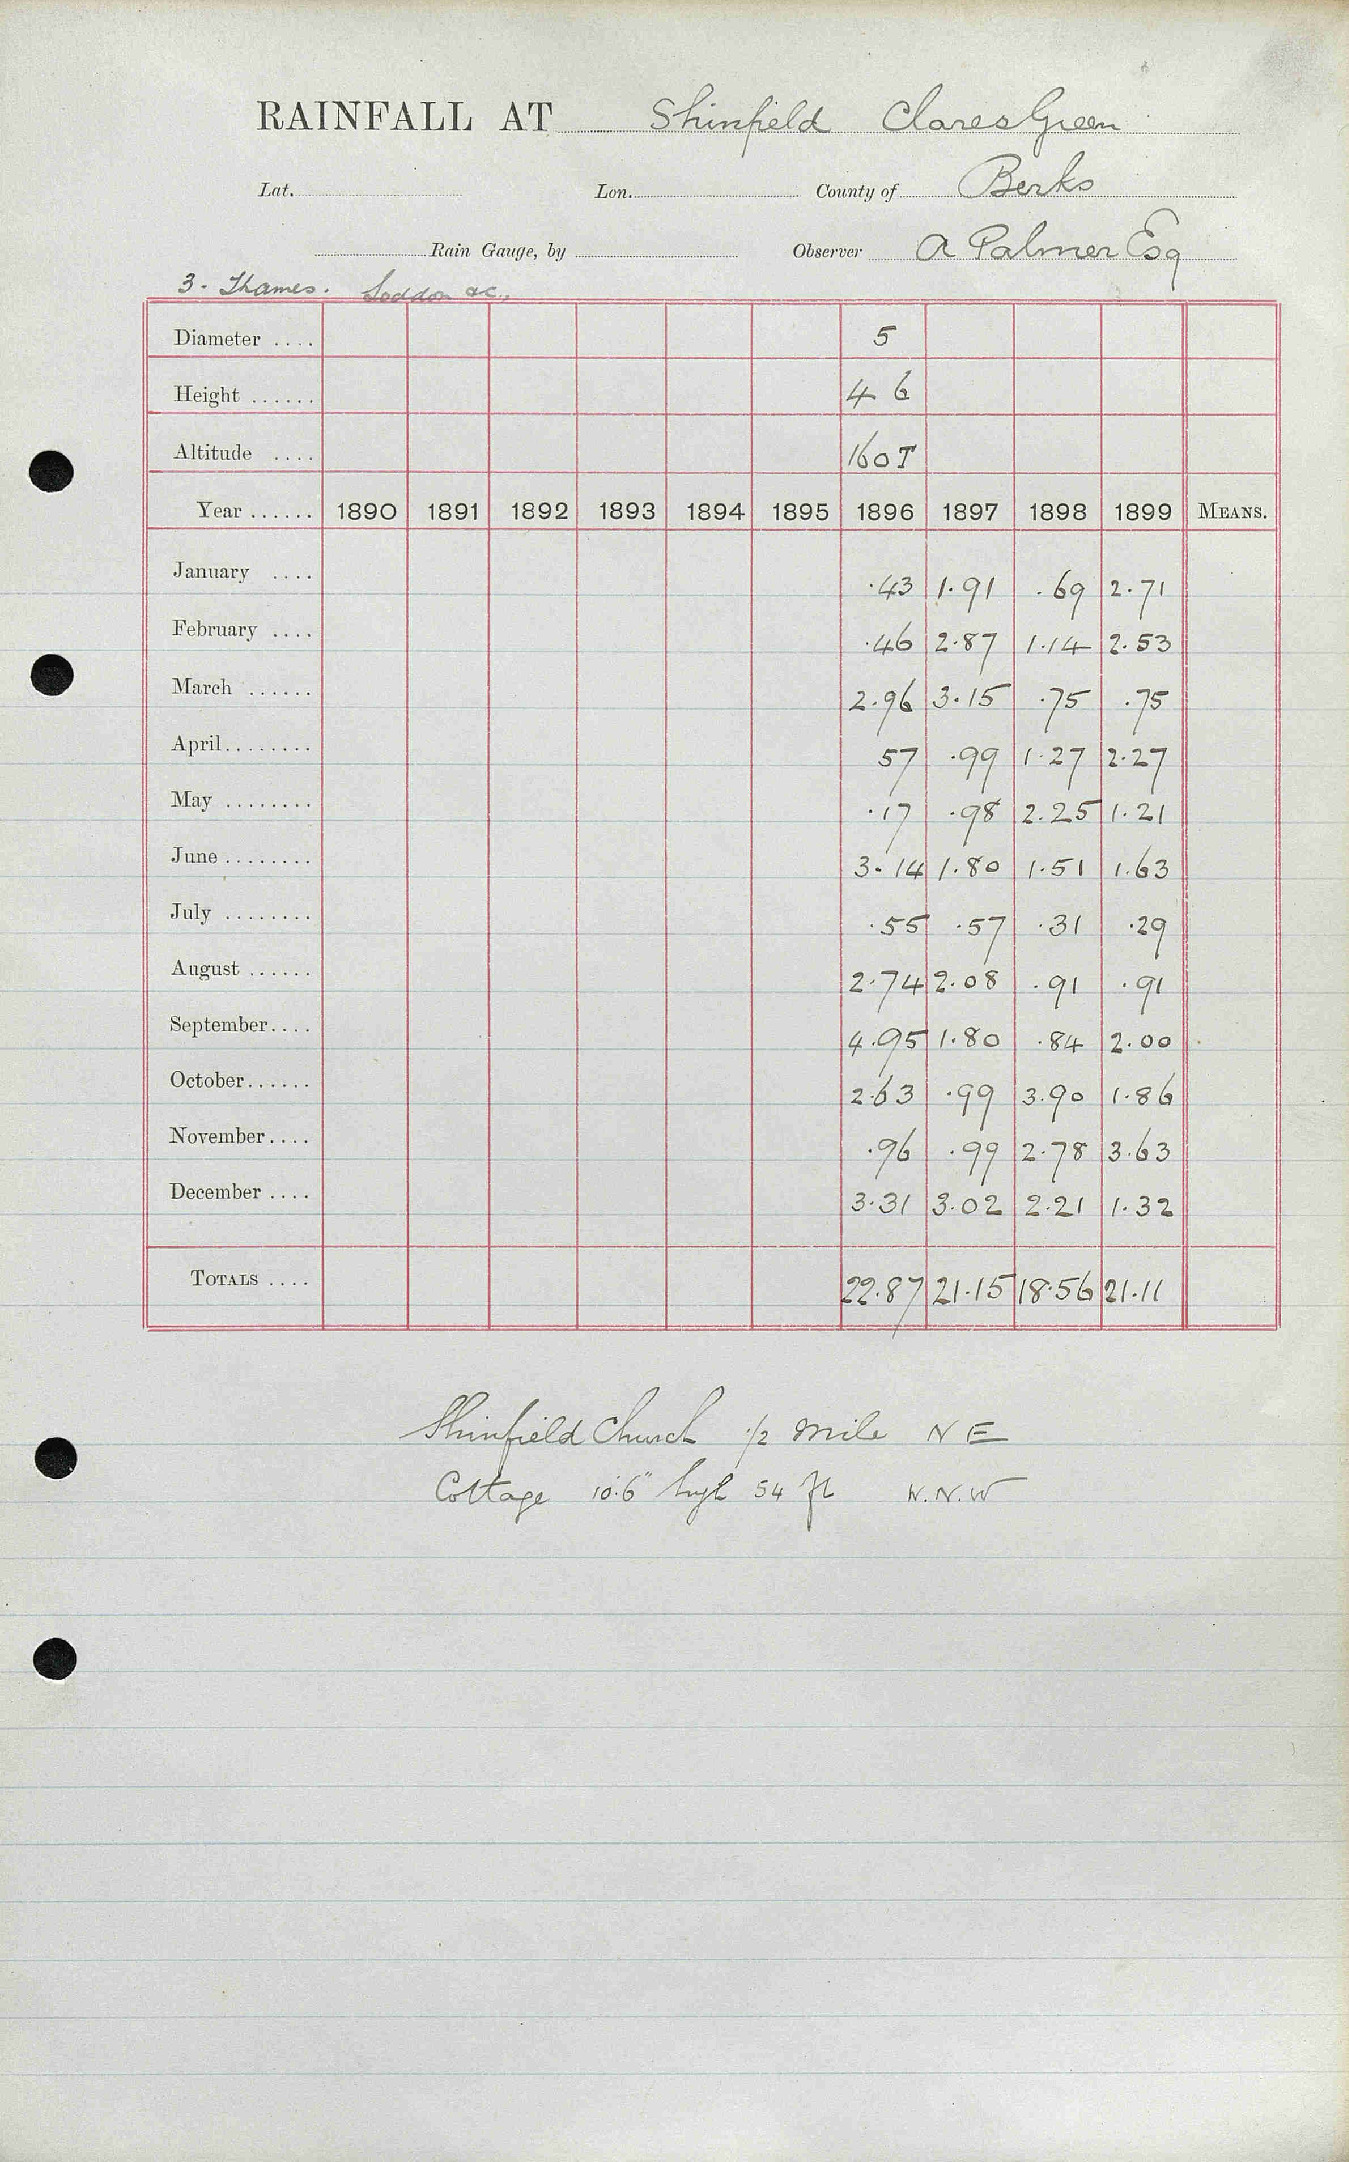 RAINFALL AT Shinfield Clares Green
Lat. Lon. County of Berks
Rain Gauge, by Observer A Palmer Esq
3. Thames. Loddon &c.,
Diameter .... 5
Height ...... 4 6
Altitude .... 160T
Year ...... 1890 1891 1892 1893 1894 1895 1896 1897 1898 1899 MEANS.
January .... .43 1.91 .69 2.71
February .... .46 2.87 1.14 2.53
March ...... 2.96 3.15 .75 .75
April........ 57 .99 1.27 2.27
May ........ .17 .98 2.25 1.21
June ........ 3.14 1.80 1.51 1.63
July ........ .55 .57 .31 .29
August ...... 2.74 2.08 .91 .91
September.... 4.95 1.80 .84 2.00
October...... 2.63 .99 3.90 1.86
November.... .96 .99 2.78 3.63
December .... 3.31 3.02 2.21 1.32
TOTALS .... 22.87 21.15 18.56 21.11
Shinfield Church 1/2 mile N E
Cottage 10.6" high 54 ft W.N.W